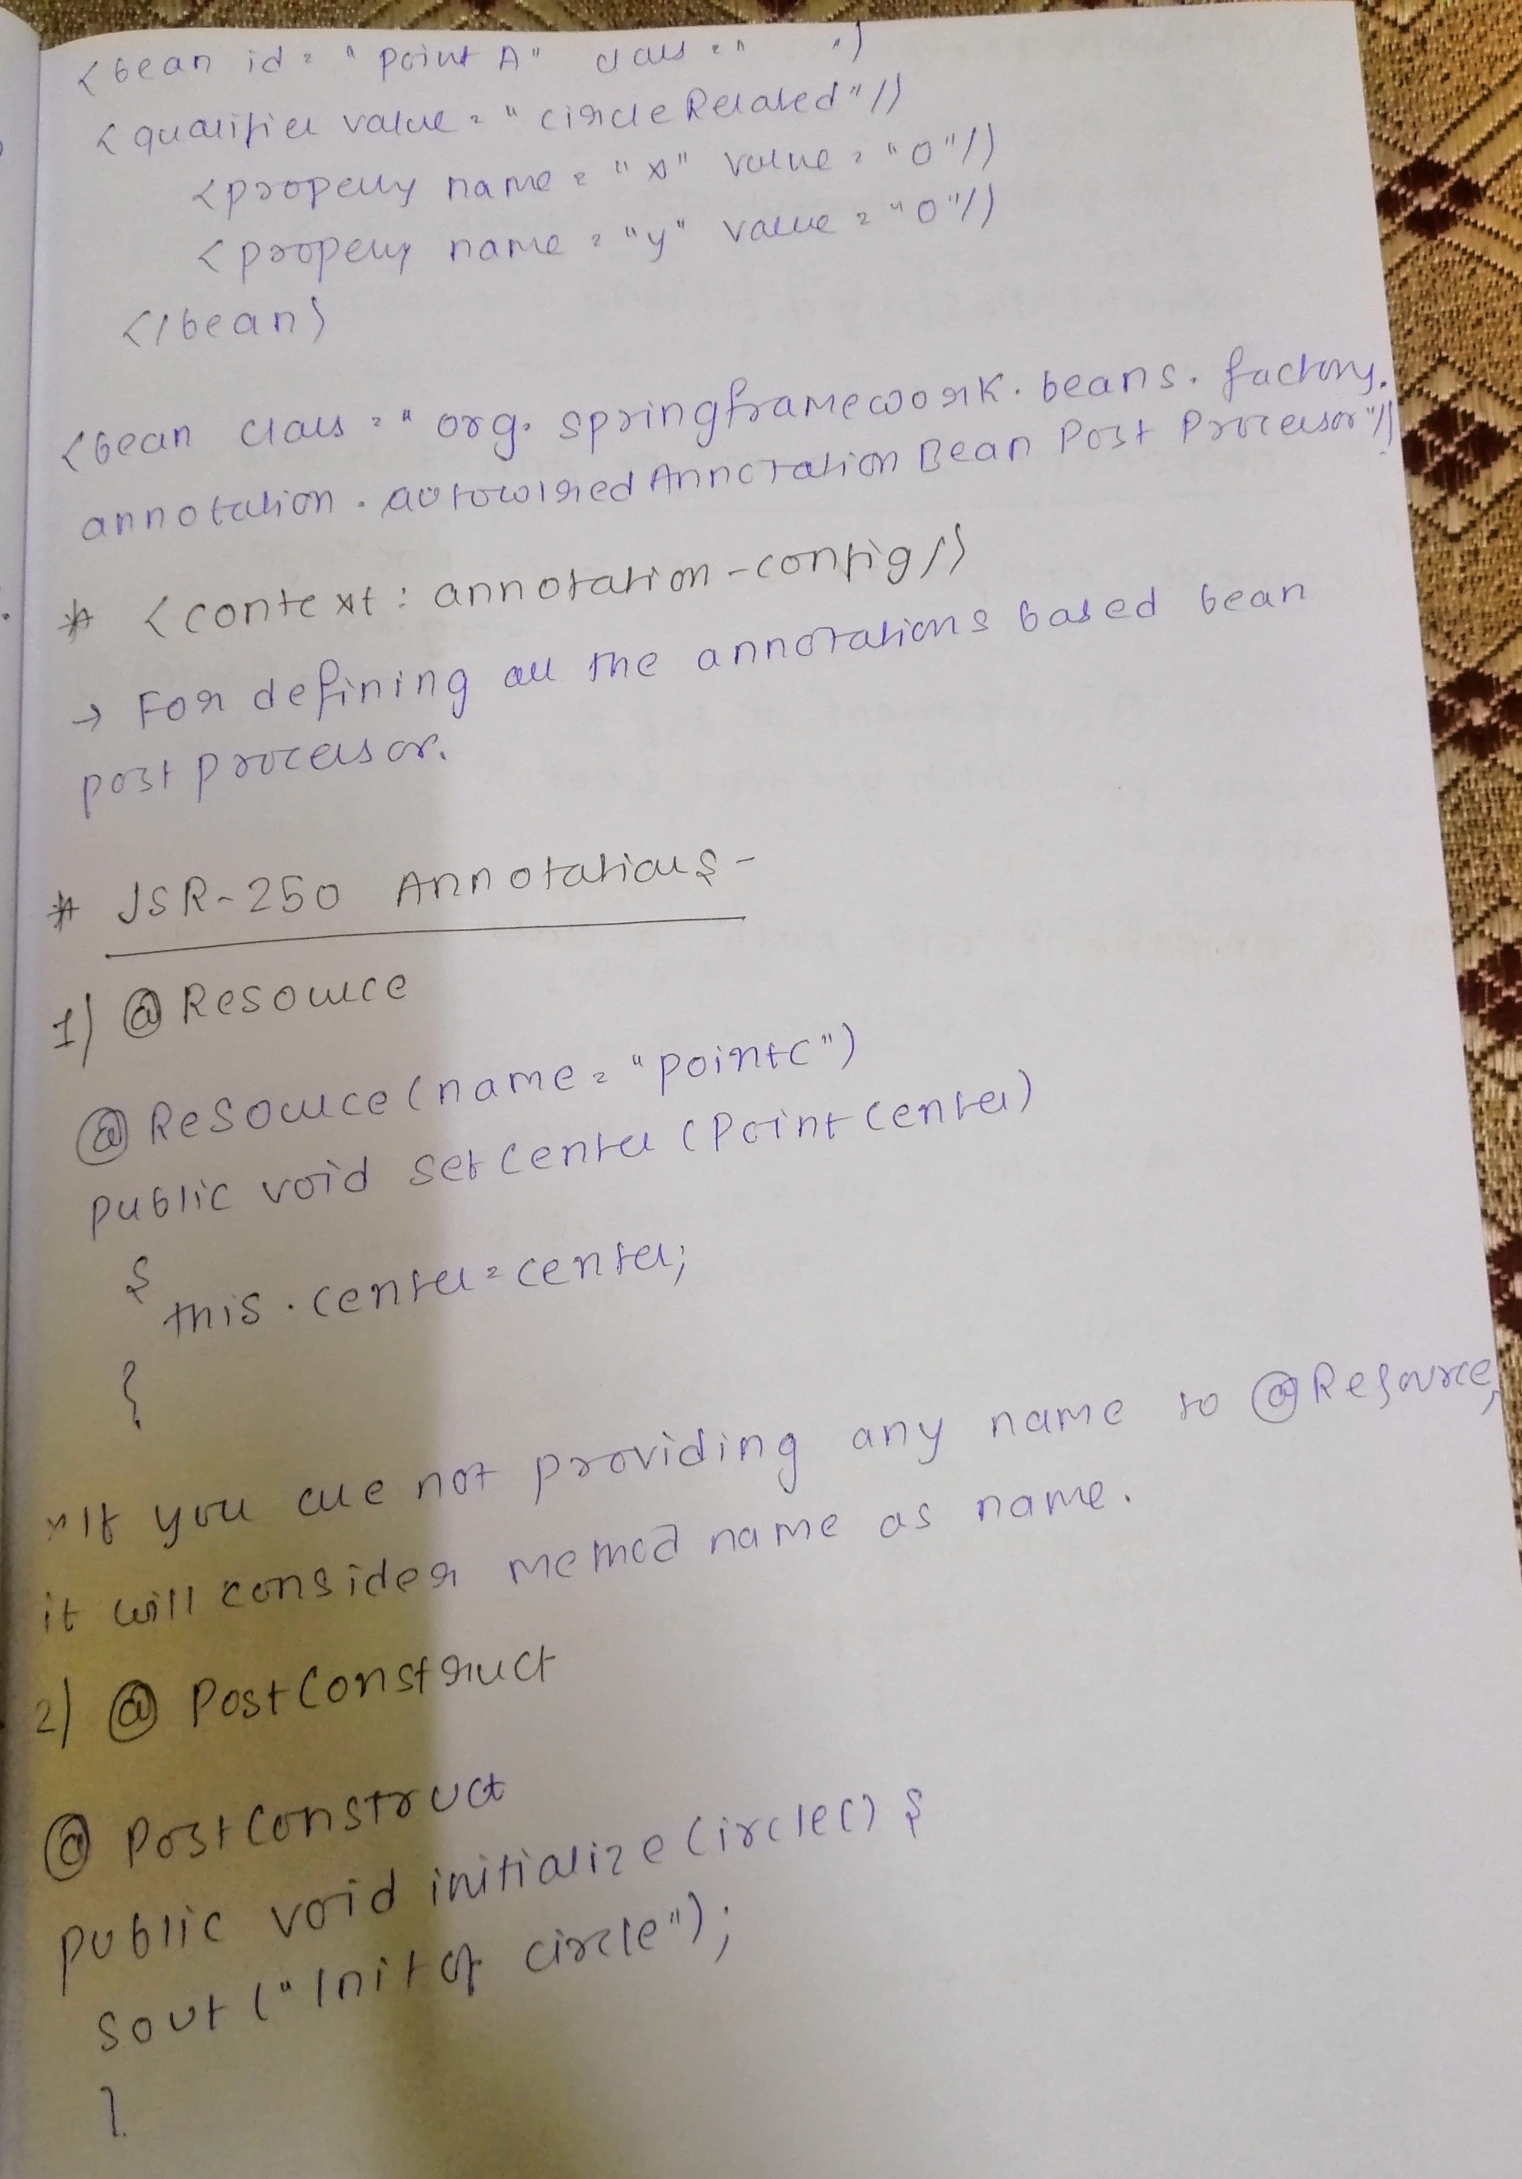 <bean id = "point A" class = "   ">
<qualifier value = "circleRelated"/>
<property name = "x" value = "0"/>
<property name = "y" value = "0"/>
</bean>
<bean class = "org. springframework. beans. factory.
annotation. autowired Annotation Bean Post Processor"/>
* <context : annotation-config/>
→ For defining all the annotations based bean
post processor.
* JSR-250 Annotations -
1) @ Resource
@ Resource (name = "pointC")
public void setCenter (Point Center)
{
this . center = center;
}
If you are not providing any name to @Resource,
it will consider method name as name.
2) @ PostConstruct
@ PostConstruct
public void initializeCircle() {
sout ("Init of circle");
}